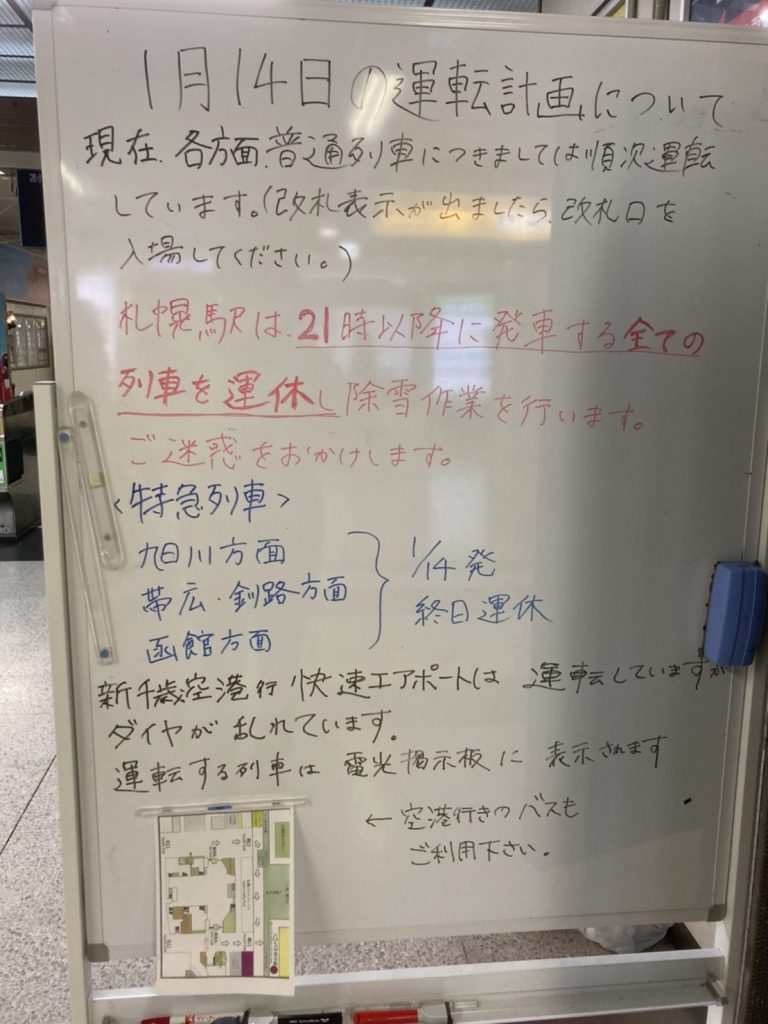 1月14日の運転計画について
現在、各方面、普通列車につきましては順次運転
しています。(改札表示が出ましたら、改札口を
入場してください。)
札幌駅は、21時以降に発車する全ての
列車を運休し除雪作業を行います。
ご迷惑をおかけします。
<特急列車>
旭川方面
帯広・釧路方面
函館方面
1/14発
終日運休
新千歳空港行 快速エアポートは 運転していますが
ダイヤが乱れています。
運転する列車は 電光掲示板に 表示されます
←空港行きのバスも
ご利用下さい。